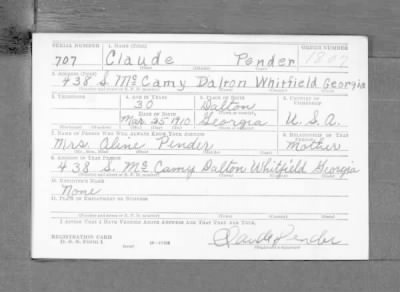 SERIAL NUMBER 1. NAME (Print) ORDER NUMBER
707 Claude Pender 1807
2. ADDRESS (Print)
438 S. Mc Camy Dalton Whitfield Georgia
3. TELEPHONE 4. AGE IN YEARS 5. PLACE OF BIRTH 6. COUNTRY OF CITIZENSHIP
30 Dalton
DATE OF BIRTH
Mar. 25 1910 Georgia U.S.A.
7. NAME OF PERSON WHO WILL ALWAYS KNOW YOUR ADDRESS 8. RELATIONSHIP OF THAT PERSON
Mrs. Aline Pinder Mother
9. ADDRESS OF THAT PERSON
438 S. Mc Camy Dalton Whitfield Georgia
10. EMPLOYER'S NAME
None
11. PLACE OF EMPLOYMENT OR BUSINESS
I AFFIRM THAT I HAVE VERIFIED ABOVE ANSWERS AND THAT THEY ARE TRUE.
REGISTRATION CARD
D. S. S. FORM 1
Claude Pender